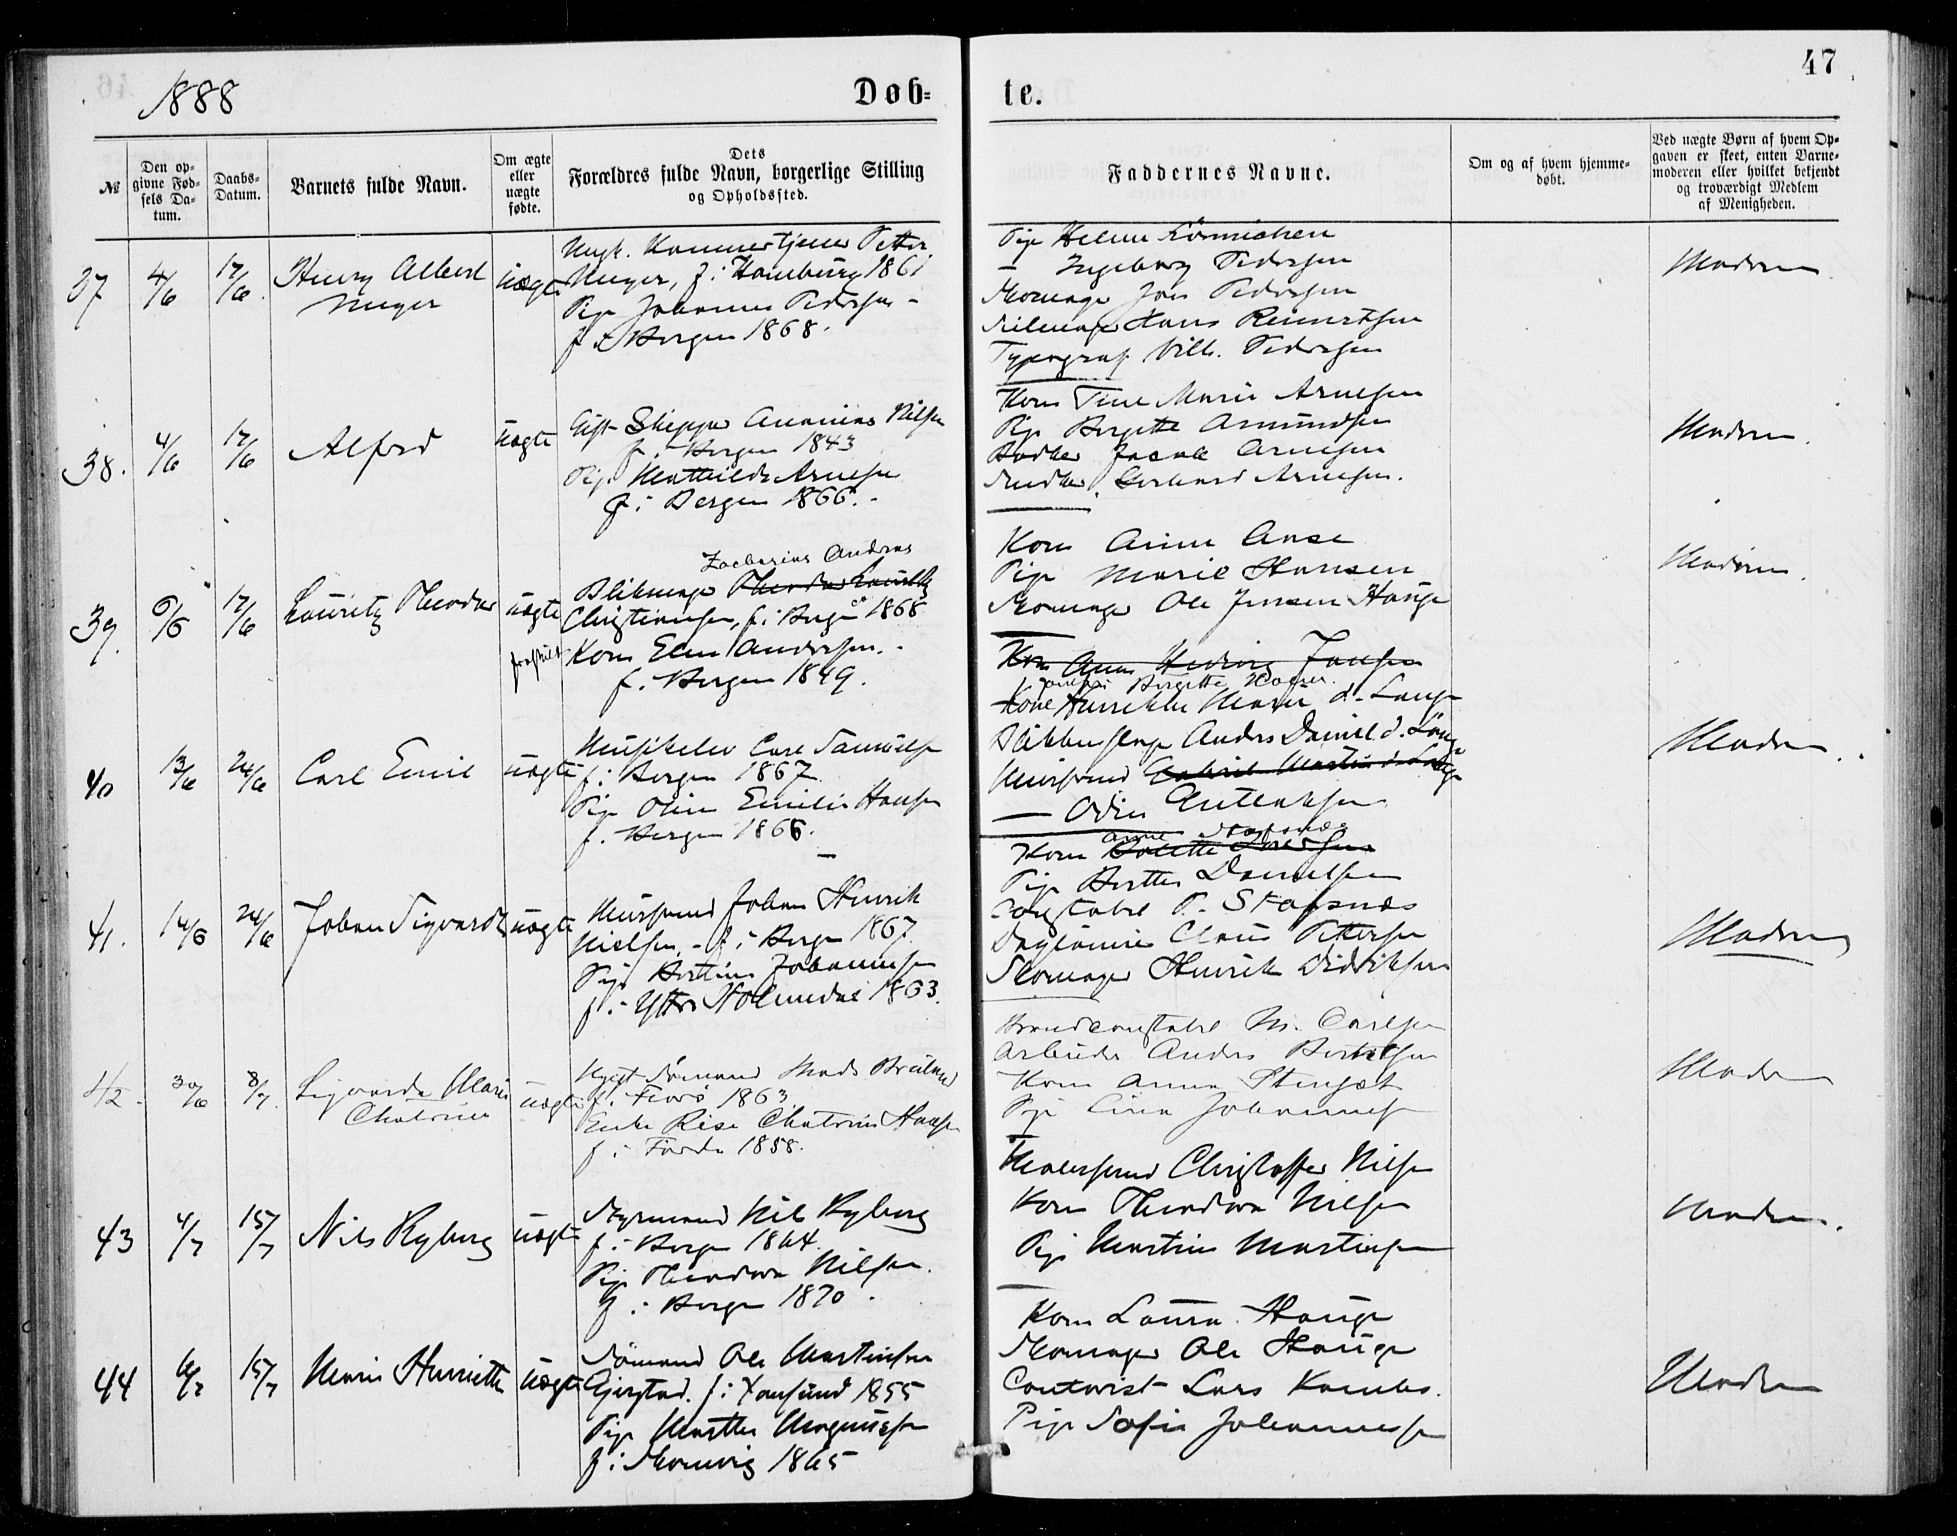 1888
Døb=
te.
47
№
Den op-
givne Fød-
sels Da-
tum.
Daabs-
Datum.
Barnets fulde Navn.
Om ægte
eller
uægte
fødte.
Dets
Forældres fulde Navn, borgerlige Stilling
og Opholdssted.
Faddernes Navne.
Om og af hvem hjemme-
døbt.
Ved uægte Børn af hvem Op-
gaven er skeet, enten Barne-
moderen eller hvilket bekjendt
og troværdigt Medlem
af Menigheden.
37 4/6 17/6 Henry Albert
Meyer
uægte
Ungk. Kammertjener Petter
Meyer, f. i Hamburg 1861
Pige Johanne Pedersen -
f. i Bergen 1868.
Pige Helene
— Ingeborg Pedersen
Skomager Jens Pedersen
Seilmager Hans Reinertsen
Typograf Vilh. Pedersen
Moderen
38. 4/6 17/6 Alfred
uægte
Gift Skipper Ananias Nilsen
f. i Bergen 1843
Pige Mathilde Arnesen
f. i Bergen 1866. -
Kone Tine Marie Arnesen
Pige Bergitte Amundsen
Bødker Jacob Arnesen
Snedker Gerhard Arnesen.
Moderen.
39. 6/6 17/6 Lauritz Theodor
uægte
fraskilt
Zacharias Andreas
Blikmager Theodor Lauritz
Christensen, f. i Bergen 1868
Kone Elen Andersen. -
f. i Bergen 1849.
Kone Anne Aase
Pige Marie Hansen
Skomager Ole Jensen Hauge
Moderen.
40 13/6 24/6 Carl Emil
uægte
Musikelev Carl Samuelsen
f. i Bergen 1867.
Pige Oline Emilie Hansen
f. i Bergen 1866.
Kone Anna Hedvig Jansen
Bergitte
Kone Henrikke Marie d. Lange
Anders Daniel d. Lange
Mursvend Gabriel Martin d. Lange
— Odin
Moderen.
41. 14/6 24/6 Johan Sigvard
uægte
Mursvend Johan Henrik
Nielsen, - f. i Bergen 1867.
Pige Bertine Johannesen
f. i Ytre Holmedal 1863.
Anne Stafsnæs
Kone
Pige Berthe Danielsen
Constabel P. Stafsnæs
Claus Pettersen
Skomager Henrik Didriksen
Moderen
42. 30/6 8/7 Sigvarda Marie
Chatrine
uægte
Ugift Sømand Mads
f. i 1863
Enke Chatrine Hansen
f. i Førde 1858.
Brandconstabel M. Carlsen
Arbeider Anders Bertelsen
Kone Anna
Pige Johannesen
Moderen
43 4/7 15/7 Nils Ryberg
uægte
Styrmand Nils Ryberg
f. i Bergen 1864.
Pige Theodora Nilsen.
f. i Bergen 1870.
Malersvend Christoffer Nilsen
Kone Theodora Nilsen
Pige Martine Martinsen
Moderen.
44 6/7 15/7 Marie Henriette
uægte
Sømand Ole Martinsen
Gjerstad. f. i 1855
Pige Marthe Magnusen
f. i 1865
Kone Laura Hauge
Skomager Ole Hauge
Contorist Lars
Pige Sofie Johannesen
Moderen